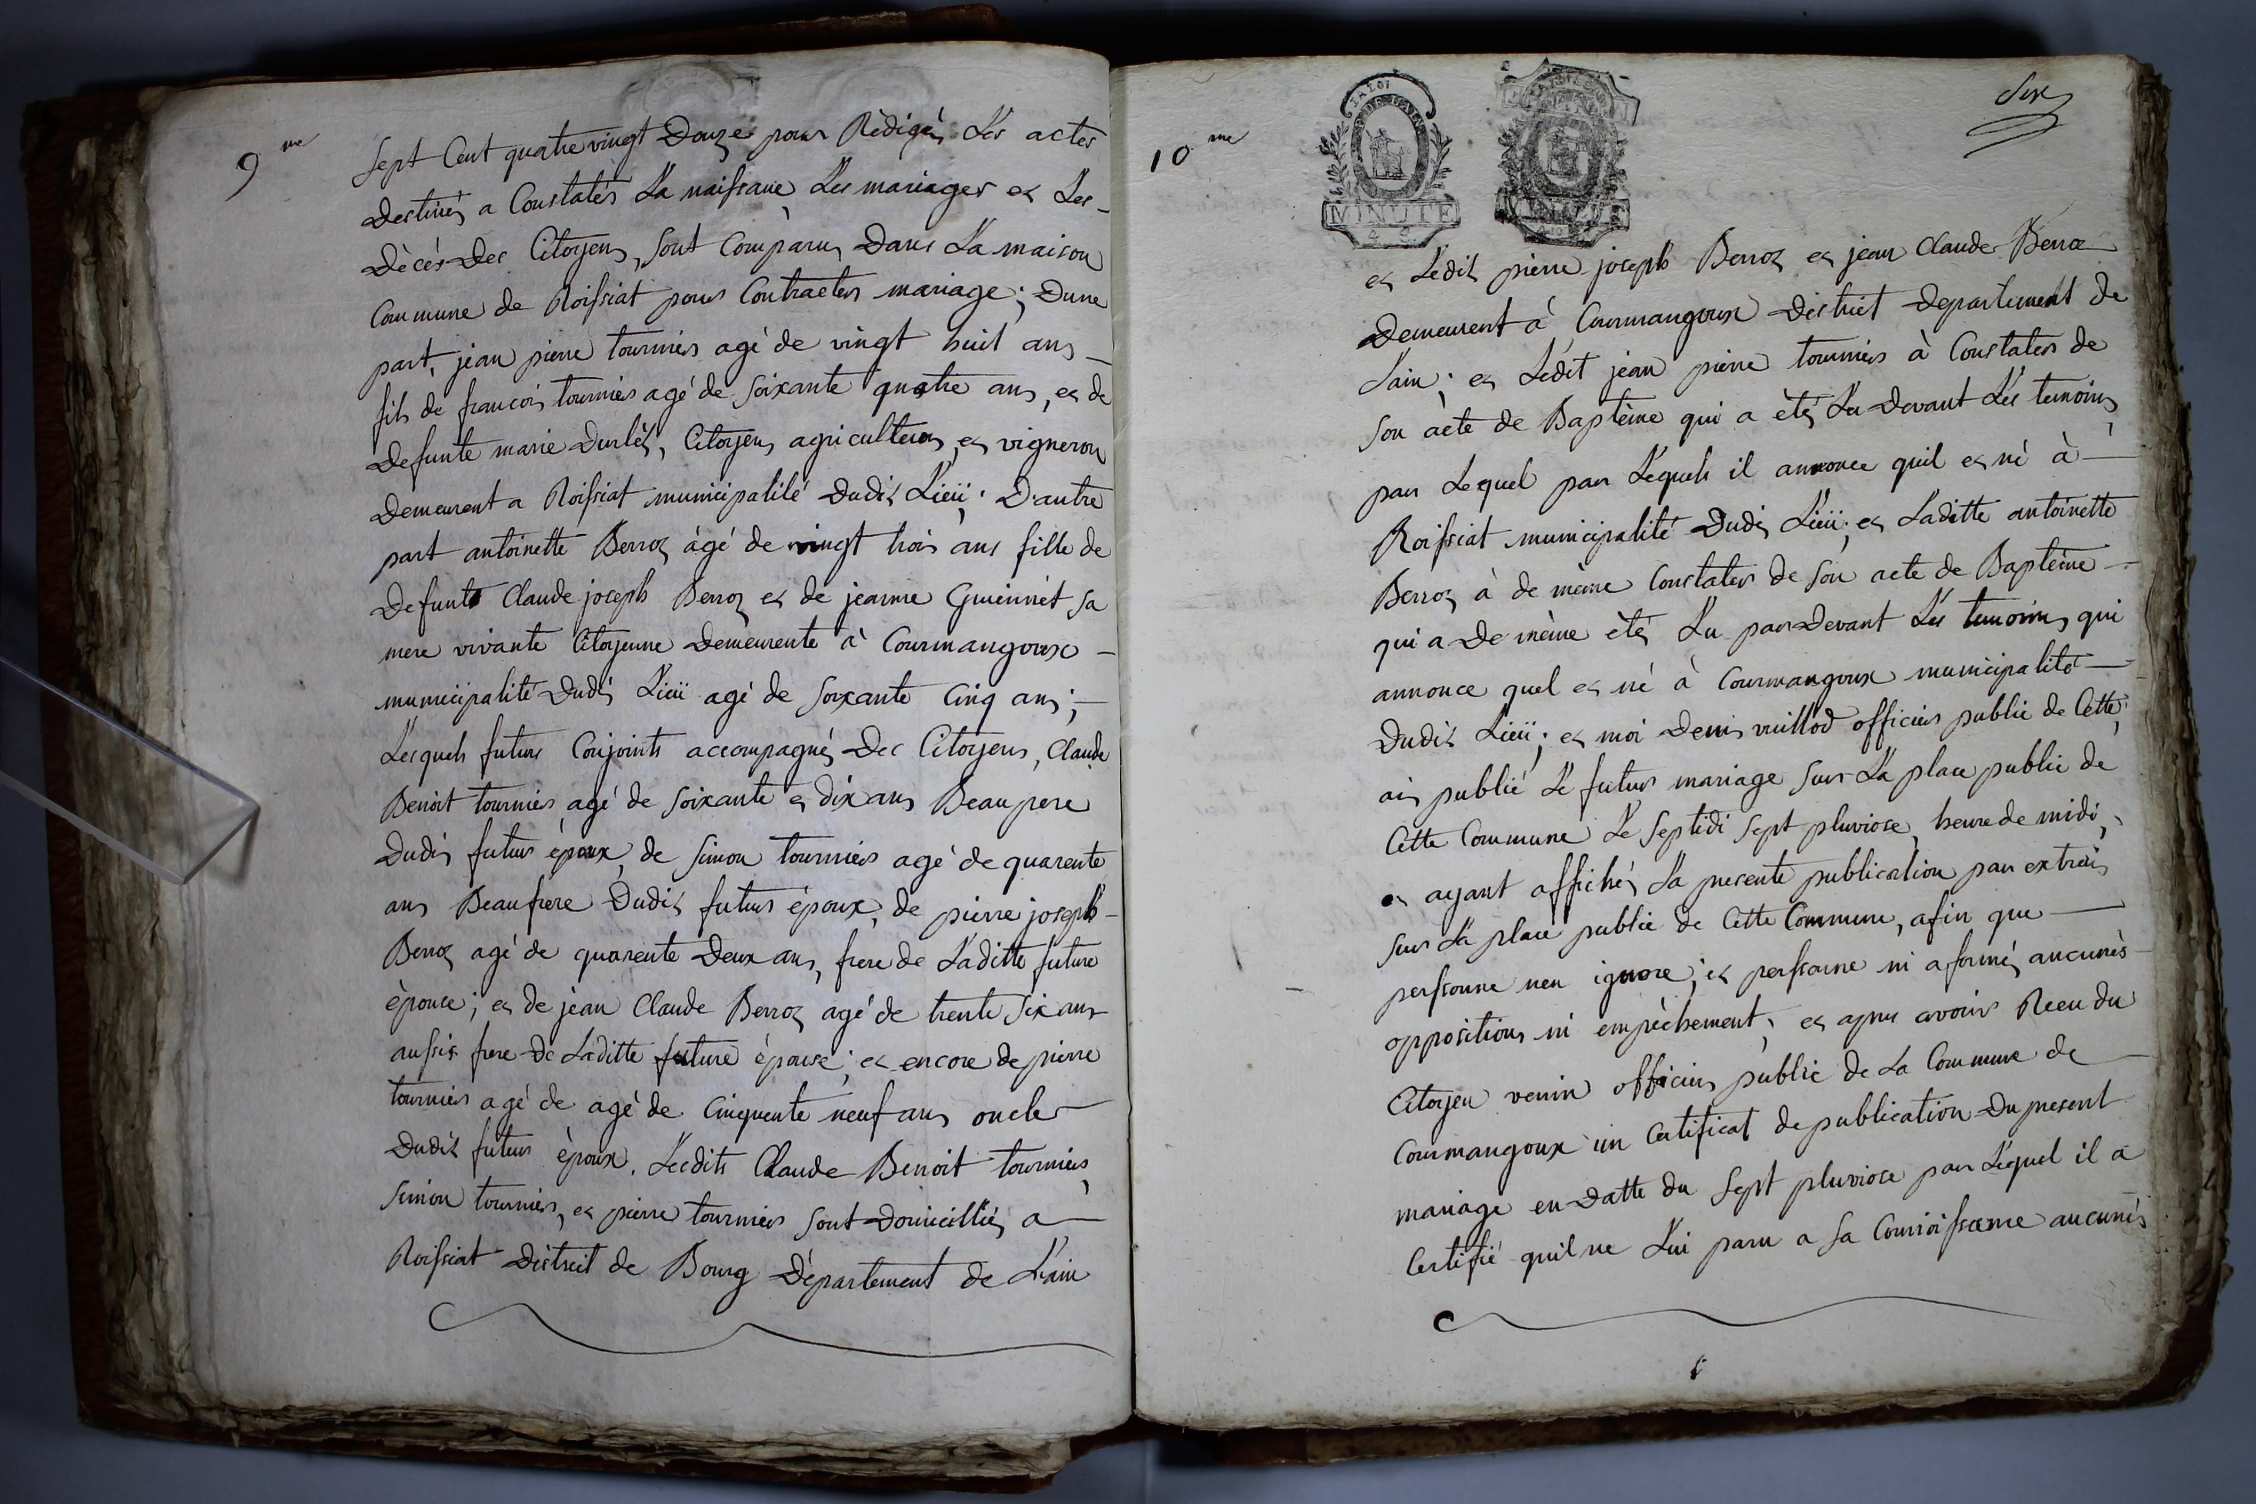 9me
Sept Cent quatre vingt Douze pour Rédigés Lés actes
Destinés a Constatér La naissance Les mariages et Les
Dècés Des Citoyens, sont Comparus Dans La maison
Commune de Roissiat pour Contracter mariage; Dune
part, jéan pierre tournier agé de vingt huit ans
fils dé francois tournier agé de soixante quatre ans, et de
Defunte marie Citoyens agriculteur et vigneron
Demeurent a Roissiat municipalité Dudit Lieü; D'autre
part antoinette Berroz àgé de vingt trois ans fille de
Defunts Claude joseph Berroz et de jeanne Guiennét sa
mere vivante Citoyenne Demeurente à Courmangoux
municipalité Dudit Lieü agé de soixante Cinq ans;
Lesquels futurs Conjoints accompagnés Des Citoyens, Claude
Benoit tournier agé de soixante et dix ans Beau pere
Dudit futur époux, de simon tournier agé de quarente
ans Beaufrere Dudit futur époux, de pierre joseph
Berroz agé de quarente Deux ans, frere de Laditte future
épouse; et de jéan Claude Berroz agé de trente six ans
aussis frere de Laditte future épouse; et encore de pierre
tournier agé de agé de Cinquente neuf ans oncle
Dudit futur époux. Lesdits Claude Benoit tournier,
simon tournier, et pierre tournier sont Domicilliés a
Roissiat District de Bourg Département de L'ain
10me
Six
LA LOI
MINUTE
et Lédit pierre joseph Berroz et jean Claude Berroz
Demeurent à Courmangoux District Departement de
Lain; et Lédit jéan pierre tournier à Constater de
son àcte de Baptème qui a èté Lu Devant Lés temoins,
par Lequel par Léquels il annonce quil et né à
Roissiat municipalité Dudit Lieü; et Laditte antoinette
Berroz à de mème Constater de son acte de Baptème
qui a De mème èté Lu par Devant Lés temoins qui
annonce quel et né à Courmangoux municipalité
Dudit Lieü; et moi Denis vuillod officier public de Cette
ait publié Le futur mariage sur La place public de
Cette Commune Le septidi sept pluviose, heure de midi,
et ayant affiché La presente publication par extrait
sur La place public de Cette Commune, afin que
perssonne nen ignore; et perssonne ni a formé aucunès
oppositions ni empèchement; et apres avoir Receu du
Citoyen venin officier public de La Commune de
Courmangoux un Certificat de publication Du present
mariage en Datte du sept pluviose par Léquel il a
Certifié quil ne Lui paru a sa aucunés